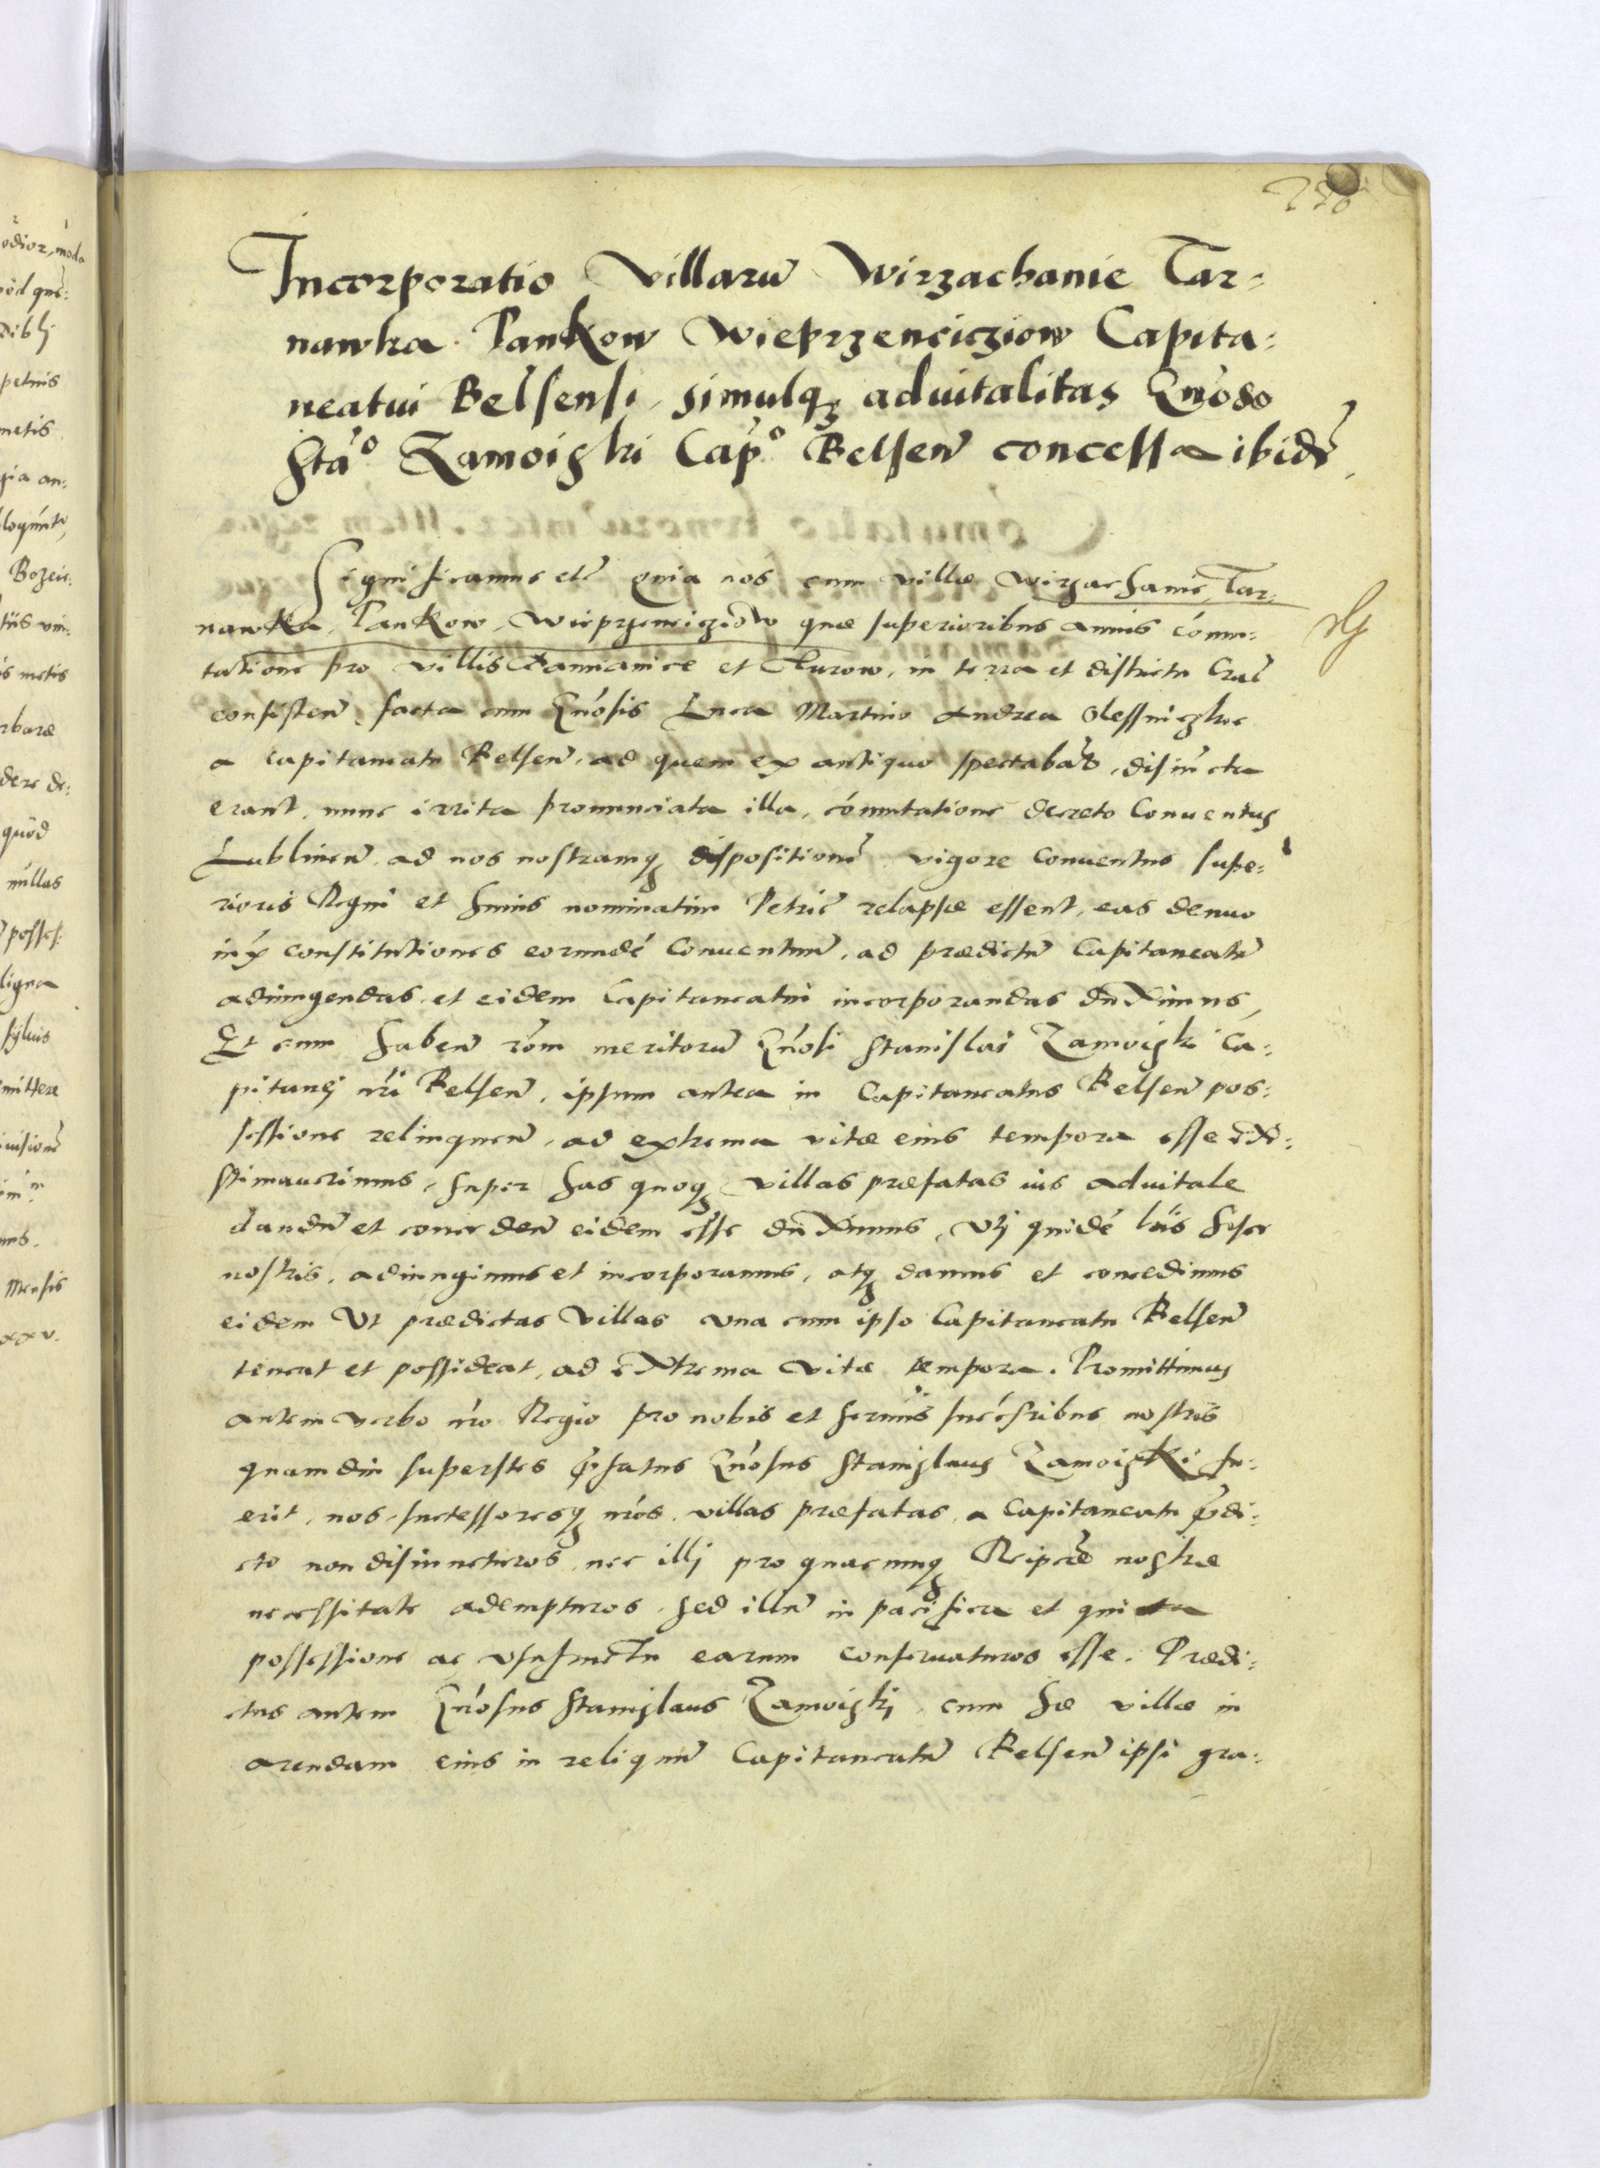 Incorporatio Villarũ Wirzachanie Tar:
nawka Pankow Wieprzenicziow Capita:
neatui Belsensi, simulq; aduitalitas Gnõdo
Stãº Zamoiski Capº Belsen̄ concessa ibidẽ,
Significamus etc̃ quia nos cum villæ Wirzachanie, Tar:
nawka, Pankow, Wieprzenicziow quæ superioribus annis com̃u:
tatione pro villis et Czurow, in terra et districtu Crac̃
consisten̄, facta cum Gnõsis Luca Martino Andrea Olessniczkie
a Capitaneatu Belsen̄, ad quem ex antiquo spectabãt, disiũcta
erant, nunc irrita pronunciata illa, com̃utatione decreto Conuentus
Lublinen̄ ad nos nostramq; dispositionẽ vigore conuentus supe:
rioris Regni et huius nominatim Petric̃ relapsæ essent, eas denuo
iux̃ constitutiones eorundẽ Conuentuum̃, ad prædictũ Capitaneatũ
adiungendas et eidem Capitaneatui incorporandas duximus,
Et cum haben̄ rõem meritorũ Gnõsi Stanislai Zamoiski Ca:
pitanej nr̃i Belsen̄, ipsum antea in Capitaneatus Belsen̄ pos:
sessione relinquen̄, ad extrema vitæ eius tempora esse exi:
stimauerimus, super has quoq; villas præfatas ius aduitale
dandũ et conceden̄ eidem esse duximus, Vti quidẽ lr̃is hisce
nostris, adiungimus et incorporamus, atq; damus et concedimus
eidem Vt prædictas Villas vna cum ipso Capitaneatu Belsen̄
teneat et possideat, ad extrema vitæ tempora. Promittimus
autem verbo nr̃o Regio pro nobis et sernis̃ suc̃c̃ribus nostris
quamdiu superstes p̃fatus Gnõsus Stanislaus Zamoiski fu:
erit, nos successoresq; nr̃os villas præfatas a Capitaneatu p̃di:
cto non disiuncturos, nec illj pro quacunq; Reipcæ nostræ
necessitate adempturos, sed illũ in pacifica et quieta
possessione ac vsufructu earum conseruaturos esse. Prædi:
ctus autem Gnõsus Stanislaus Zamoiskj, cum hæ villæ in
arendam eius in reliquũ Capitaneatũ Belsen̄ ipsi gra: